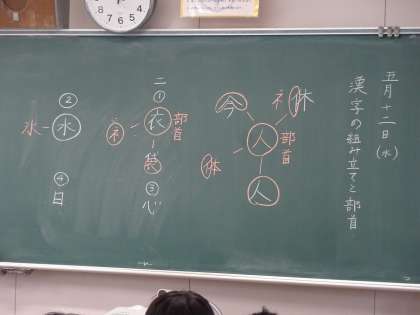 五月十二日（水）
漢字の組み立てと部首
休
ネ
人
部首
今
体
人
二
①
衣
部首
ネ
袋
③
心
②
水
氷
④
日